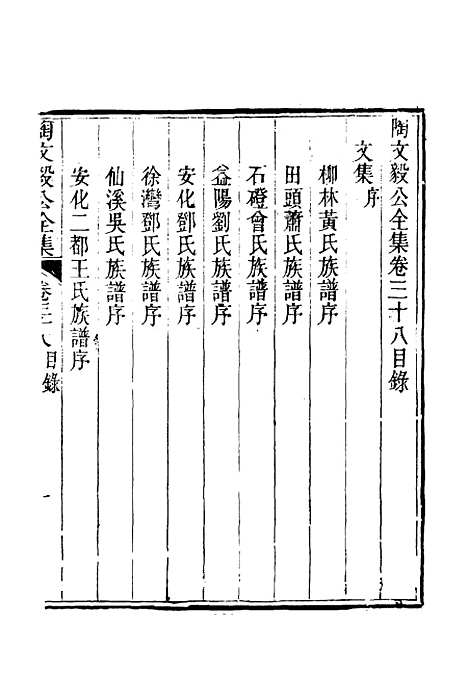 陶文毅公全集卷三十八目錄
文集序
柳林黃氏族譜序
田頭蕭氏族譜序
石磴曾氏族譜序
益陽劉氏族譜序
安化鄧氏族譜序
徐灣鄧氏族譜序
仙溪吳氏族譜序
安化二都王氏族譜序
陶文毅公全集 卷三十八目錄 一